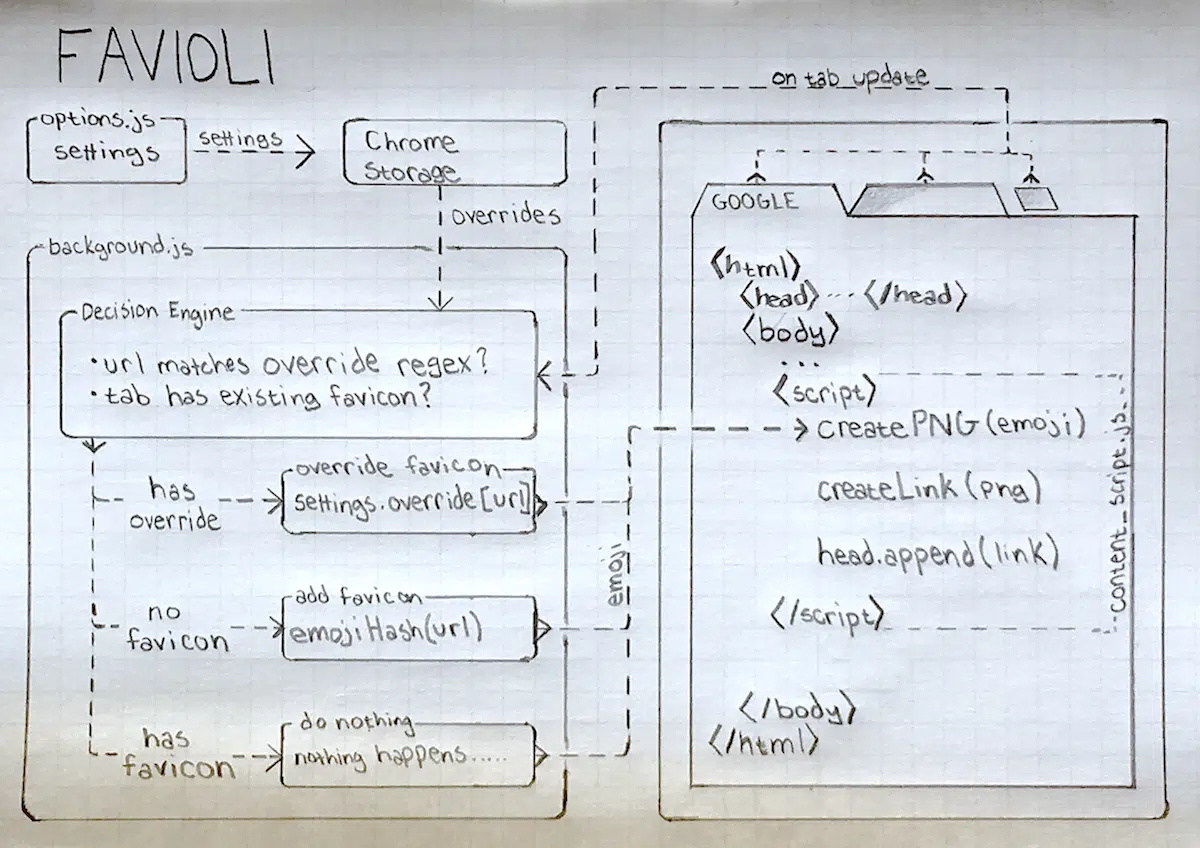 FAVIOLI
options.js
settings
settings
Chrome
Storage
overrides
background.js
Decision Engine
• url matches override regex?
• tab has existing favicon?
has
override
override favicon
settings.override[url]
no
favicon
add favicon
emojiHash(url)
has
favicon
do nothing
nothing happens.....
emoji
on tab update
GOOGLE
<html>
<head> ... </head>
<body>
...
<script>
createPNG(emoji)
createLink(png)
head.append(link)
</script>
content_script.js
</body>
</html>